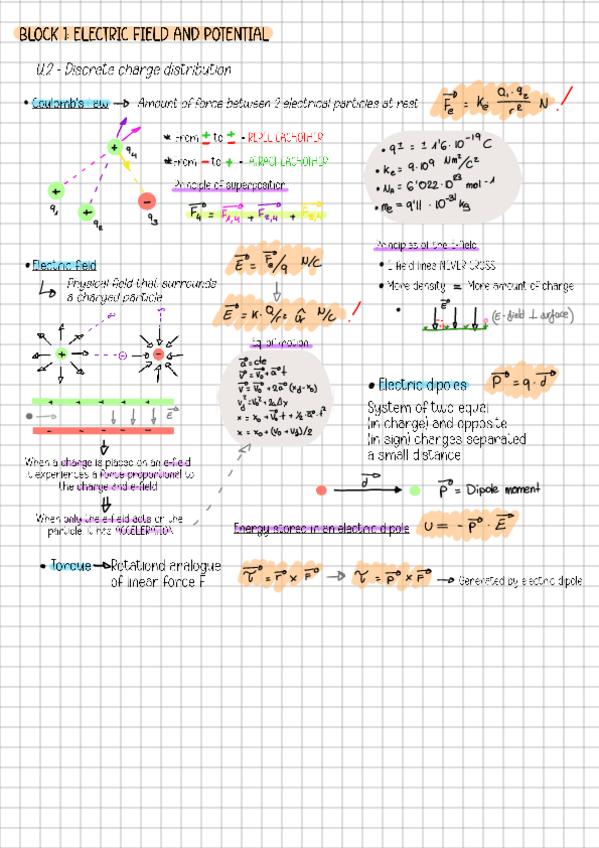 BLOCK 1: ELECTRIC FIELD AND POTENTIAL
U.2 - Discrete charge distribution
• Coulomb's law → Amount of force between 2 electrical particles at rest
F⃗e = Ke Q₁·q₂/r² N !
* From + to + - REPEL EACHOTHER
* From - to + - ATRACT EACHOTHER
Principle of superposition
F⃗₄ = F⃗₁,₄ + F⃗₂,₄ + F⃗₃,₄
q₁
q₂
q₃
q₄
• q± = ± 1'6·10⁻¹⁹ C
• Ke = 9·10⁹ Nm²/C²
• Na = 6'022·10²³ mol⁻¹
• me = 9'11·10⁻³¹ kg
• Electric field
Physical field that surrounds
a charged particle
E⃗ = F⃗e/q N/C
E⃗ = K·Q/r²· N/C !
Principles of the E-field
• E field lines NEVER CROSS
• More density = More amount of charge
• E⃗
(E-field ⊥ surface)
E⃗
When a charge is placed on an e-field
it experiences a force proportional to
the charge and e-field
When only the e-field acts on the
particle, it has ACCELERATION
Eq. of motion
a⃗ = cte
v⃗ = v⃗₀ + a⃗·t
v⃗ = v⃗₀ + 2a⃗ (xf - x₀)
x = x₀ + v⃗₀·t + ½·a⃗·t²
x = x₀ + (v₀ + vf)/2
• Electric dipoles
P⃗ = q·d⃗
System of two equal
(in charge) and opposite
(in sign) charges separated
a small distance
d⃗
P⃗ = Dipole moment
Energy stored in an electric dipole
U = -P⃗·E⃗
• Torque → Rotational analogue
of linear force F⃗
τ⃗ = r⃗ × F⃗ → τ⃗ = P⃗ × F⃗ → Generated by electric dipole